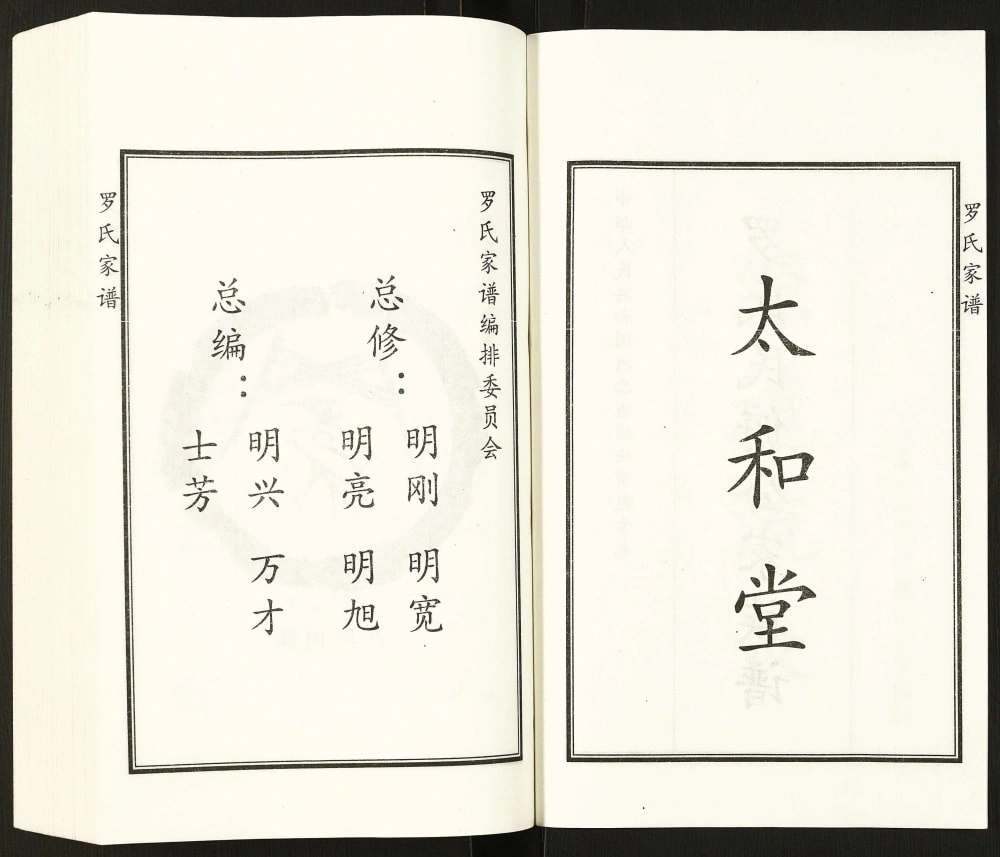 罗氏家谱
太和堂
罗氏家谱编排委员会
总修：
明刚 明宽
明亮 明旭
总编：
明兴 万才
士芳
罗氏家谱